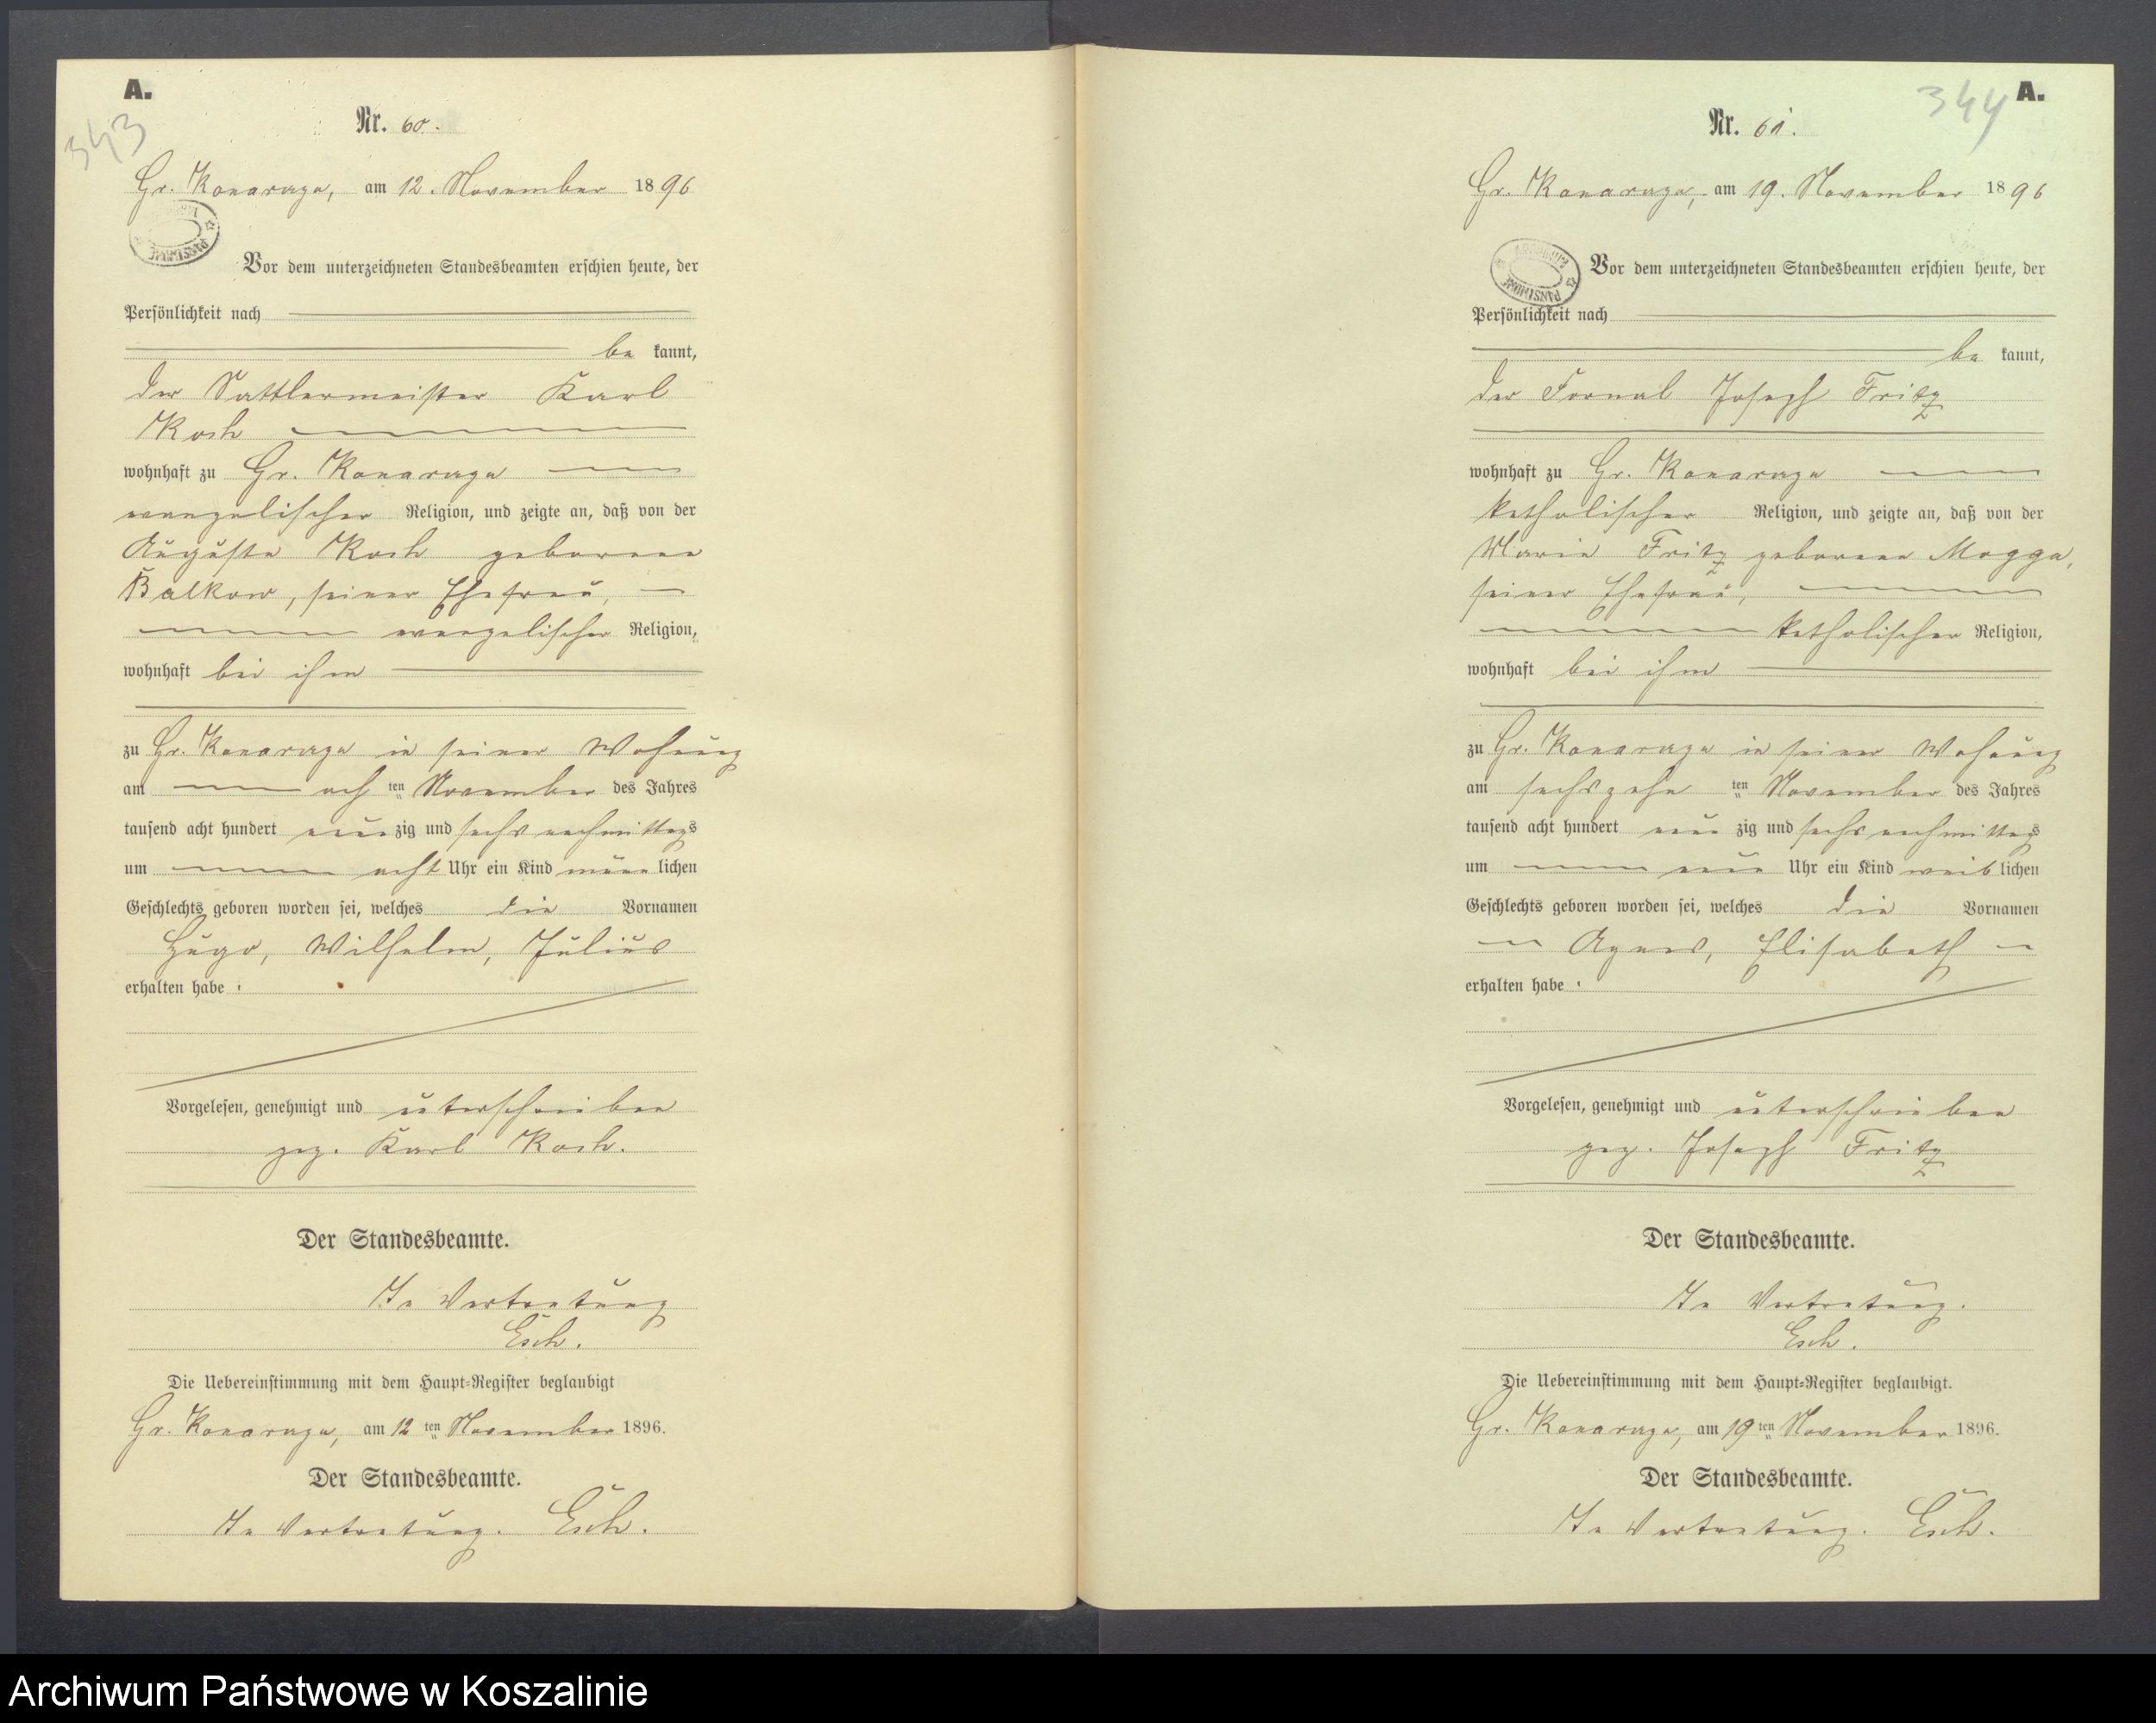 A.
343
Nr. 60.
Gr. Konarczyn, am 12. November 1896
Vor dem unterzeichneten Standesbeamten erschien heute, der
Persönlichkeit nach
be kannt,
der Sattlermeister Karl
Koch
wohnhaft zu Gr. Konarczyn
evangelischer Religion, und zeigte an, daß von der
Auguste Koch geborenen
Balkow, seiner Ehefrau,
evangelischer Religion,
wohnhaft bei ihm
zu Gr. Konarczyn in seiner Wohnung
am ach ten November des Jahres
tausend acht hundert neun zig und sechs nachmittags
um acht Uhr ein Kind männ lichen
Geschlechts geboren worden sei, welches die Vornamen
Hugo, Wilhelm, Julius
erhalten habe.
Vorgelesen, genehmigt und unterschrieben
gez. Karl Koch.
Der Standesbeamte.
In Vertretung
Esch.
Die Uebereinstimmung mit dem Haupt-Register beglaubigt
Gr. Konarczyn, am 12 ten November 1896.
Der Standesbeamte.
In Vertretung. Esch.
344 A.
Nr. 61.
Gr. Konarczyn, am 19. November 1896
Vor dem unterzeichneten Standesbeamten erschien heute, der
Persönlichkeit nach
be kannt,
der Fornal Joseph Fritz
wohnhaft zu Gr. Konarczyn
katholischer Religion, und zeigte an, daß von der
Marie Fritz geborenen Mogga,
seiner Ehefrau,
katholischer Religion,
wohnhaft bei ihm
zu Gr. Konarczyn in seiner Wohnung
am sechszehn ten November des Jahres
tausend acht hundert neun zig und sechs nachmittags
um neun Uhr ein Kind weib lichen
Geschlechts geboren worden sei, welches die Vornamen
Agnes, Elisabeth
erhalten habe.
Vorgelesen, genehmigt und unterschrieben
gez. Joseph Fritz
Der Standesbeamte.
In Vertretung.
Esch.
Die Uebereinstimmung mit dem Haupt-Register beglaubigt.
Gr. Konarczyn, am 19 ten November 1896.
Der Standesbeamte.
In Vertretung. Esch.
Archiwum Państwowe w Koszalinie